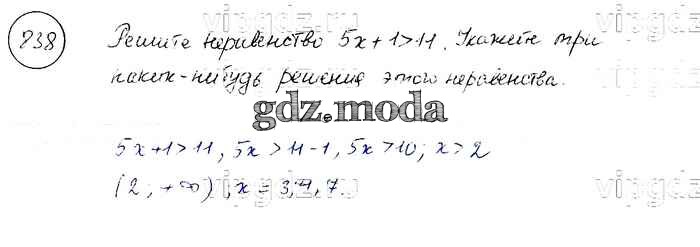 838 Решите неравенство 5x+1>11. Укажите три
каких-нибудь решения этого неравенства.
gdz.moda
5x+1>11, 5x>11-1, 5x>10; x>2
(2; +∞), x = 3; 4, 7.
vipgdz
vipgdz
vipgdz
vipgdz